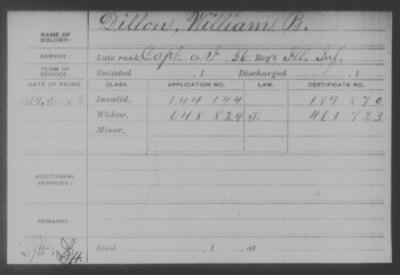 NAME OF SOLDIER: Dillon, William B.
SERVICE: Late rank, Capt. Co. F, 56 Reg't Ill. Inf.
TERM OF SERVICE: Enlisted , 1 Discharged , 1
DATE OF FILING. CLASS. APPLICATION NO. LAW. CERTIFICATE NO.
Invalid, 144 144 187 870
Widow, 648 824 461 723
Minor,
ADDITIONAL SERVICES:
REMARKS:
Died , 1 , at